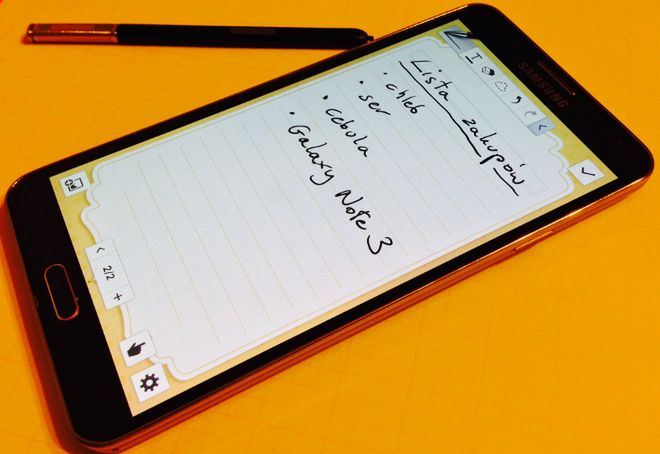 SAMSUNG
Lista zakupów
• chleb
• ser
• cebula
• Galaxy Note 3
< 2/2 +